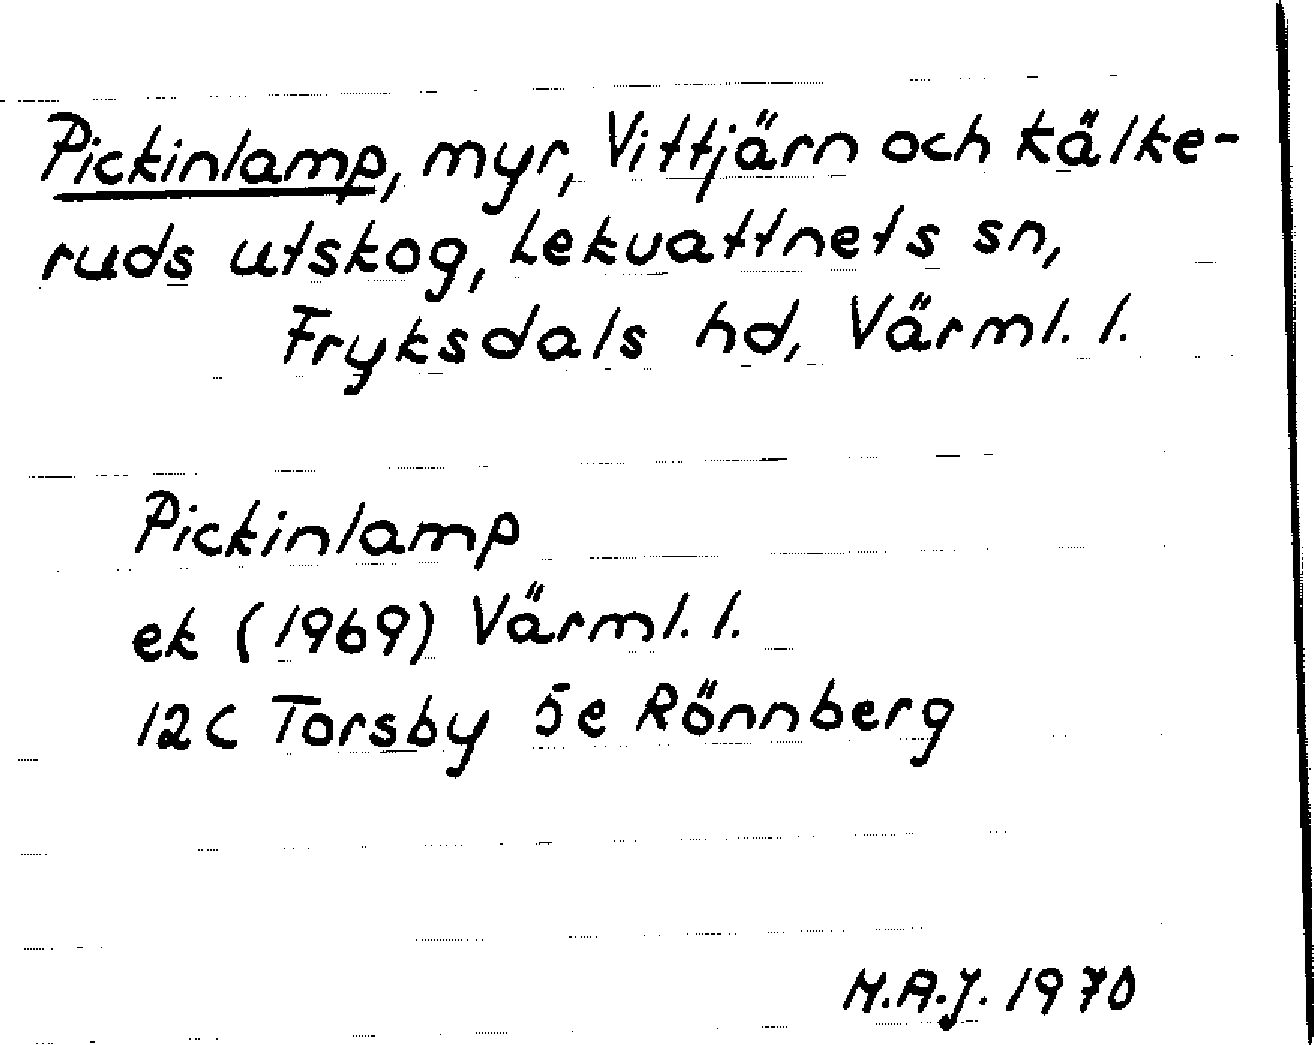 Pickinlamp, myr, Vittjärn och Kälke-
ruds utskog, Lekvattnets sn,
Fryksdals hd, Värml. l.
Pickinlamp
ek (1969) Värml. l.
12C Torsby 5e Rönnberg
M.A.J. 1970